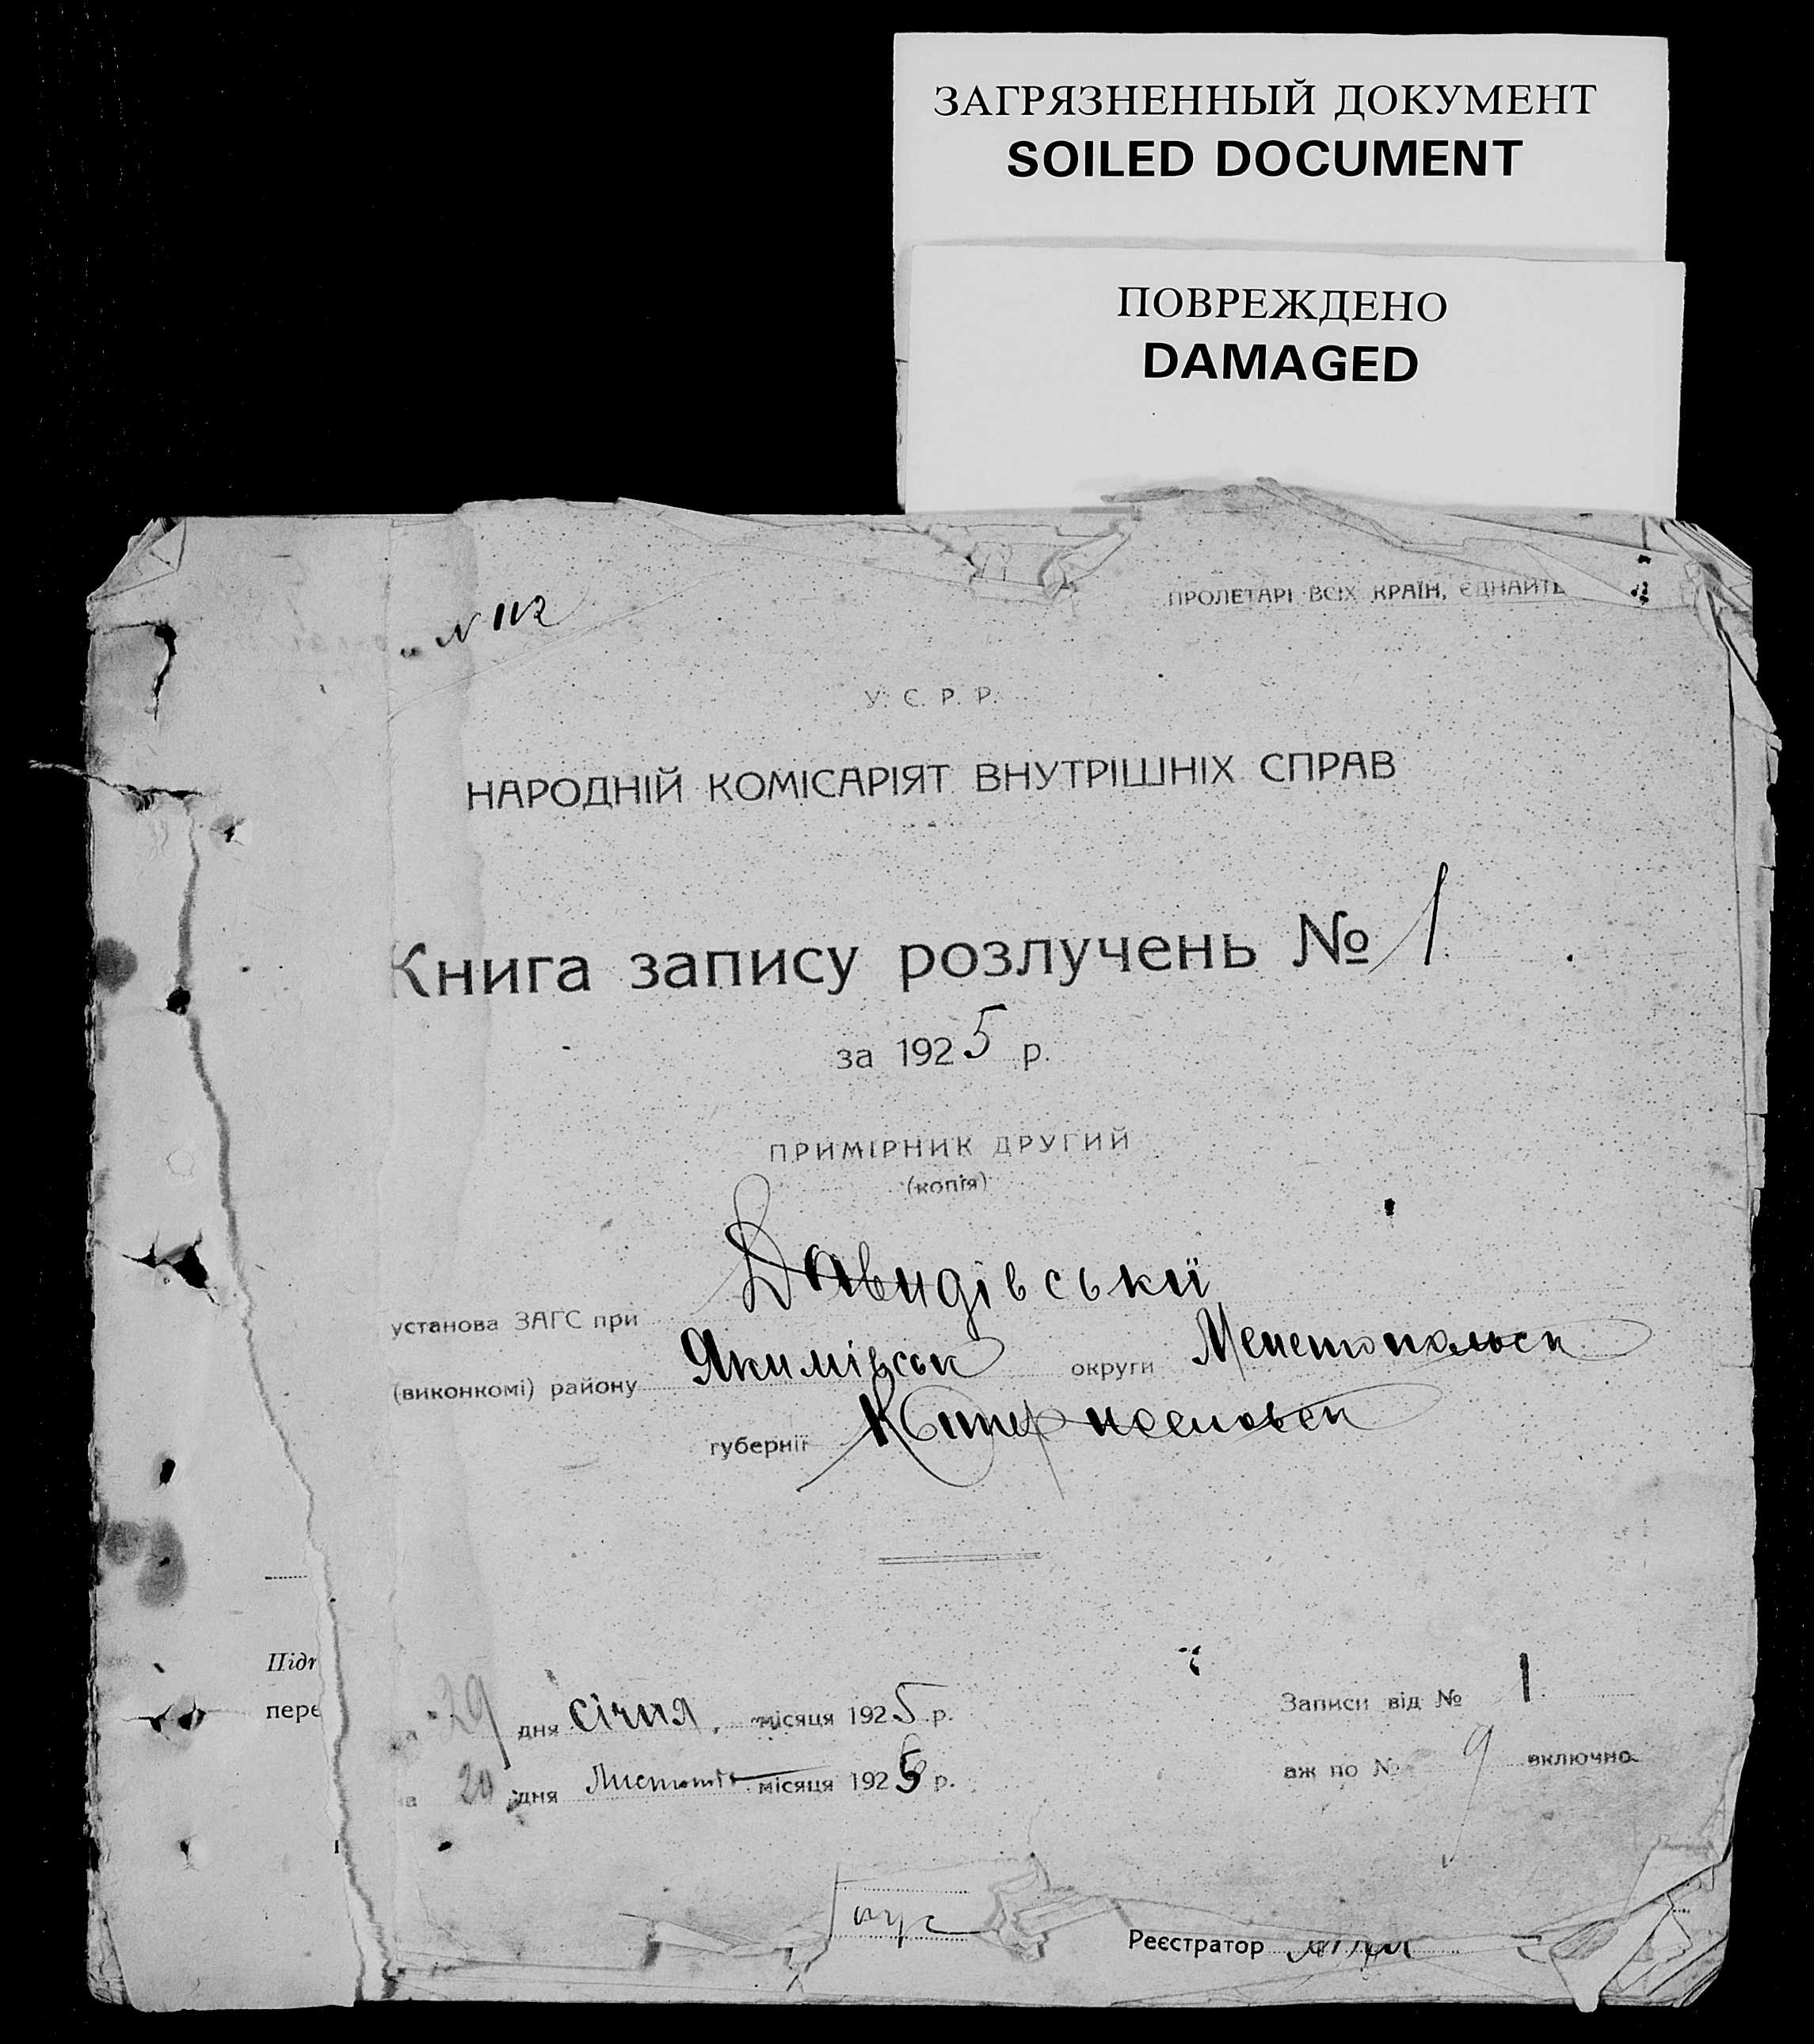 ЗАГРЯЗНЕННЫЙ ДОКУМЕНТ
SOILED DOCUMENT
ПОВРЕЖДЕНО
DAMAGED
N 112
ПРОЛЕТАРІ ВСІХ КРАЇН, ЄДНАЙТЕ
У. С. Р. Р.
НАРОДНІЙ КОМІСАРІЯТ ВНУТРІШНІХ СПРАВ
Книга запису розлучень № 1
за 1925 р.
ПРИМІРНИК ДРУГИЙ
(копія)
установа ЗАГС при Давидівській
(виконкомі) району Якимівськ округи Мелетопольськ
губернії Катеринославськ
Підп
пере
29 дня січня місяця 1925 р. Записи від № 1
20 дня Листопа місяця 1925 р. аж по № 9 включно
Реєстратор